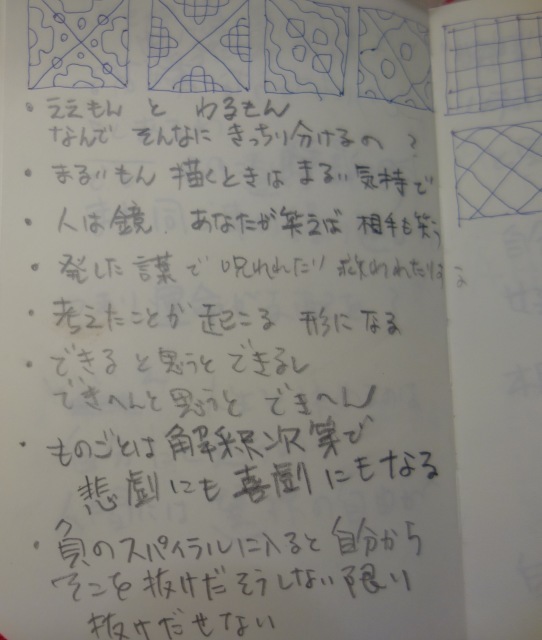 ・ええもん と わるもん
なんで そんなに きっちり分けるの？
・まるいもん 描くときは まるい気持で
・人は鏡 あなたが笑えば 相手も笑う
・発した言葉で 呪われたり 救われたりする
・考えたことが 起こる 形になる
・できる と思うと できるし
できへんと思うと できへん
・ものごとは 解釈次第で
悲劇にも 喜劇にもなる
・負のスパイラルに入ると 自分から
そこを 抜けだそうしない 限り
抜けだせない